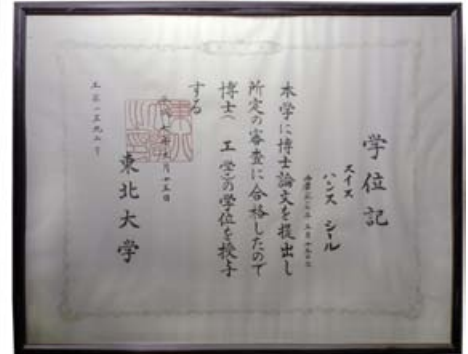 学位記
スイス
ハンス シール
本学に博士論文を提出し
所定の審査に合格したので
博士(工学)の学位を授与
する
東北大学